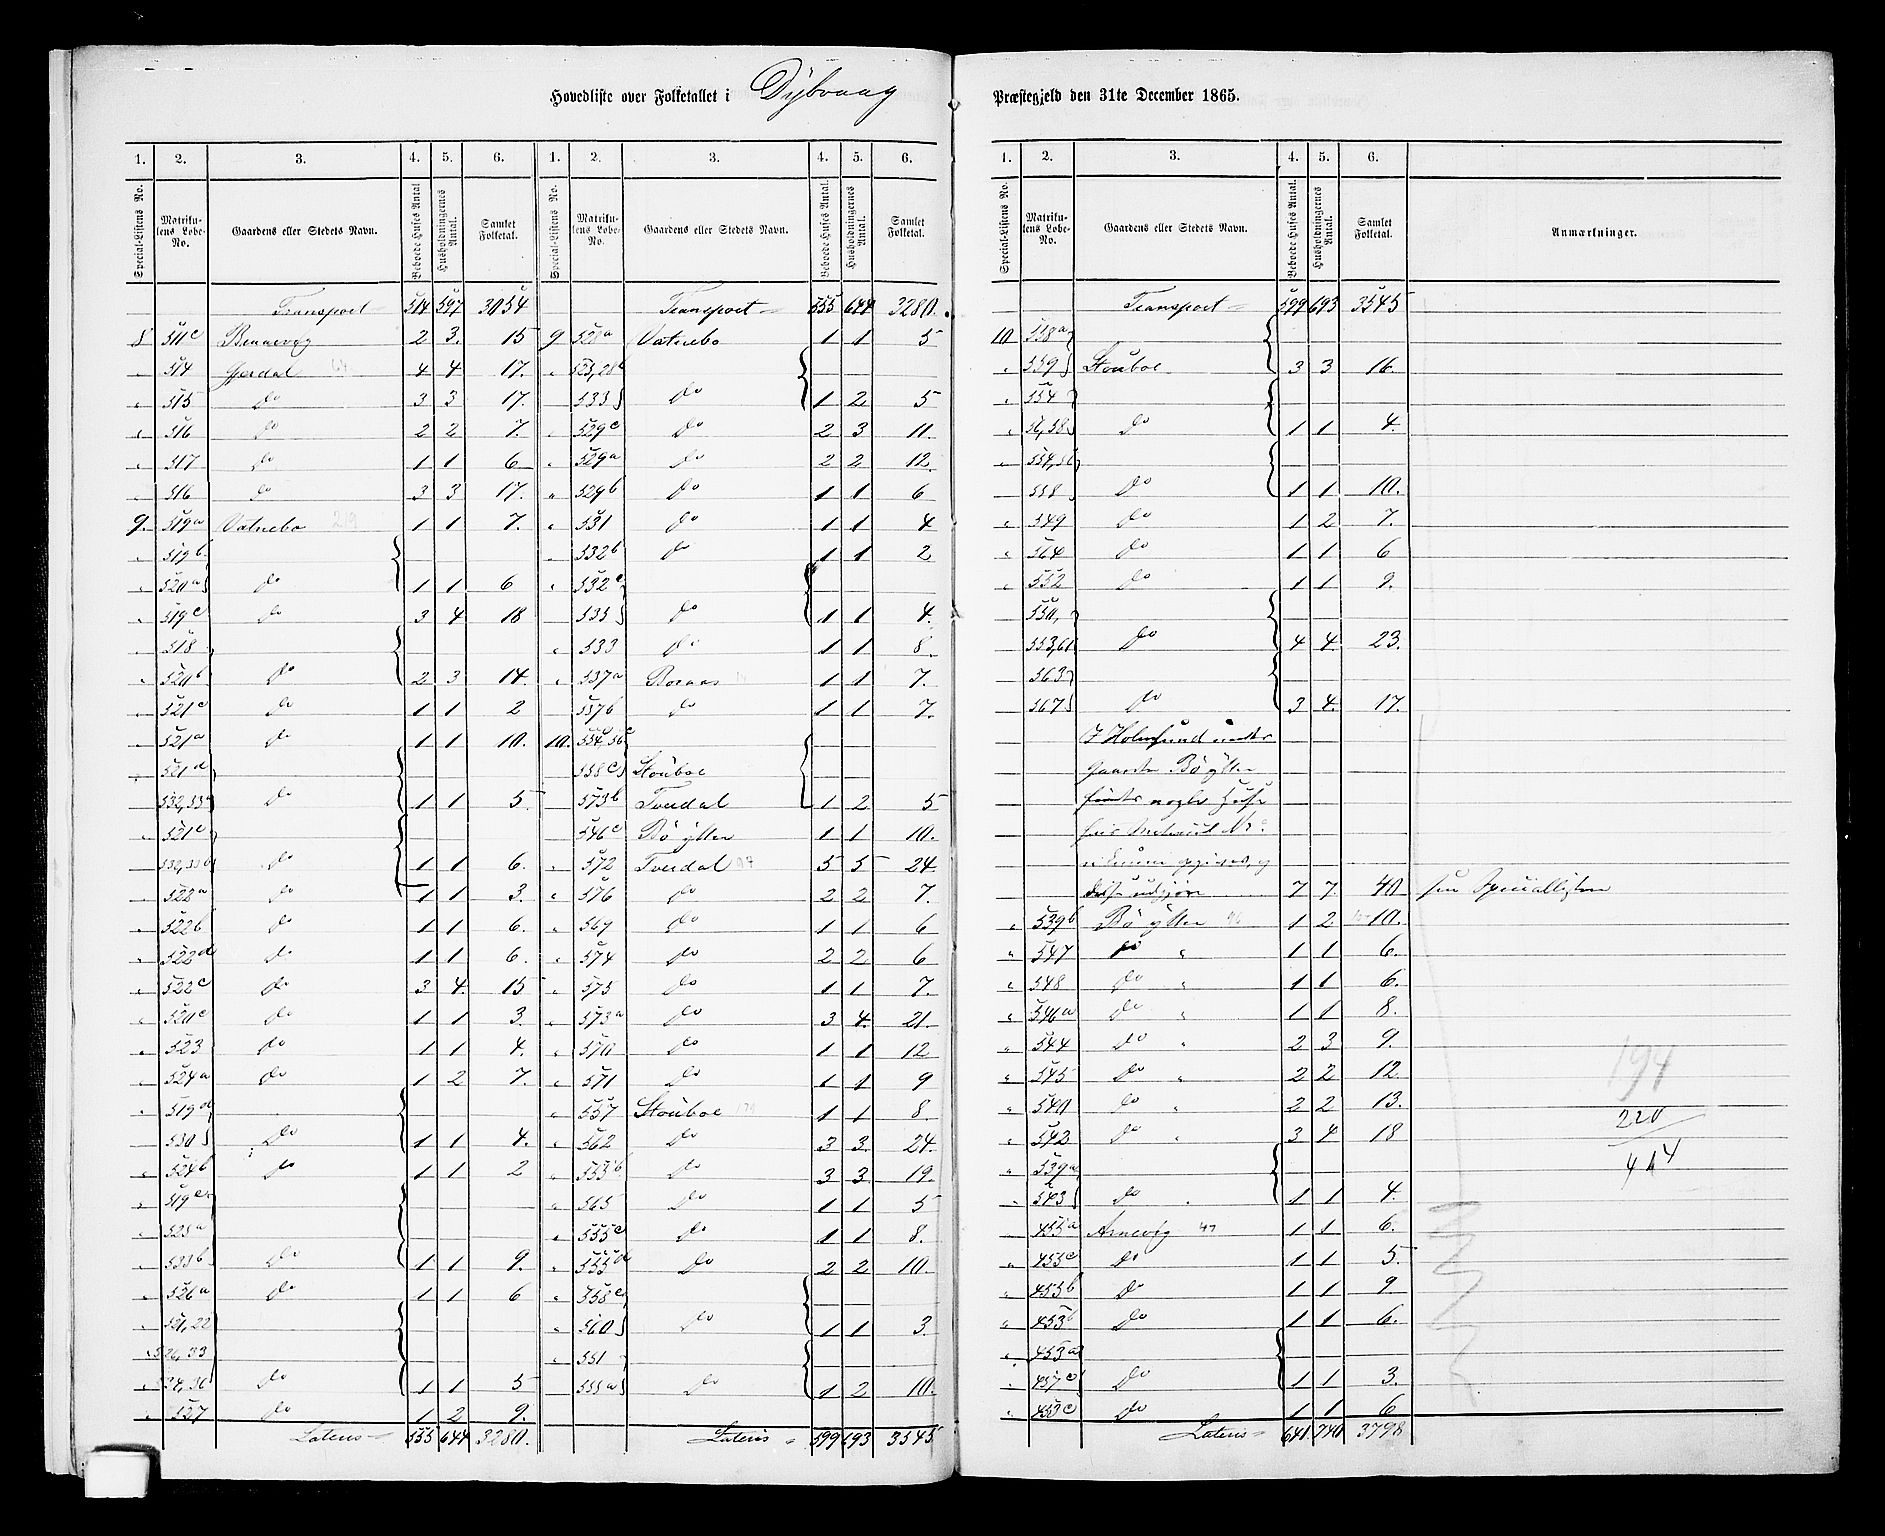 Hovedliste over Folketallet i Dybvaag Præstegjeld den 31te December 1865.
1. 2. 3. 4. 5. 6. 1. 2. 3. 4. 5. 6.
Special-Listens No. Matrikulens Løbe-No. Gaardens eller Stedets Navn. Beboede Huses Antal Husholdningernes Antal. Samlet Folketal. Special-Listens No. Matrikulens Løbe-No. Gaardens eller Stedets Navn. Beboede Huses Antal. Husholdningernes Antal. Samlet Folketal.
Transport 514 597 3054
8 511c Bennevig 2 3. 15
514 Gjerdal 64 4 4 17.
515 do 3 3 17.
516 do 2 2 7.
517 do 1 1 6
516 do 3 3 17.
9. 519a Vatnebo 219 1 1 7.
519b
520a do 1 1 6
519c do 3 4 18
518
520b do 2 3 14.
521c do 1 1 2
521a do 1 1 10.
521d
532,33a do 1 1 5
521e
532,33b do 1 1 6.
522a do 1 1 3.
522b do 1 1 6.
522d do 1 1 6.
522c do 3 4. 15
520c do 1 1 3.
523 do 1 1 4.
524a do 1 2 7.
519d
530 do 1 1 4.
524b do 1 1 2
519e
525a
533b do 1 1 9.
526a do 1 1 6
521,22
526,33
do 1 1 5
527 do 1 2 9.
Lateris 555 644 3280.
Transport 555 644 3280.
9 528a Vatnebo 1 1 5
525,28b
533 do 1 2 5
529c do 2 3 11.
529a do 2 2 12.
529b do 1 1 6
531 do 1 1 4
532b do 1 1 2
532c
535 do 1 1 4.
533 do 1 1 8.
537a Boraas 1 1 7.
537b do 1 1 7.
10. 554,56c
558c Stouboe
573b Tverdal 1 2 5
546c Bø ytter 1 1 10.
572 Tverdal 97 5 5 24
576 do 2 2 7.
569 do 1 1 6
574 do 2 2 6
575 do 1 1 7.
573a do 3 4. 21.
570 do 1 1 12
571 do 1 1 9
557 Stouboe 179 1 1 8.
562 do 3 3. 24.
555b do 3 3 19.
565 do 1 1 5
555c do 1 1 8.
555d do 2 2 10.
558c
560 do 1 1 3.
551
555a do 1 2 10.
Lateris 599 693 3545
1. 2. 3. 4. 5. 6.
Special-Listens No. Matrikulens Løbe-No. Gaardens eller Stedets Navn. Beboede Huses Antal. Husholdningernes Antal. Samlet Folketal. Anmærkninger.
Transport 599 693 3545
10 558a
559 Stouboe 3 3 16.
554
56,58 do 1 1 4.
554,56
558 do 1 1 10.
549 do 1 2 7.
564 do 1 1 6
552 do 1 1 9.
550,
553,61 do 4 4. 23.
563
567 do 3 4. 17.
I Holmsund under
Gaarden Bø ytter
findes nogle Huse
hvis Matricul Nr.
ei kunne opgives, og
disse udgjøre 7 7. 40 see Speciallisten
539b Bø ytter 96 1 2 10.
547 do 1 1 6.
548 do 1 1 6.
546a do 1 1 8.
544 do 2 3 9.
545 do 2 2 12.
540 do 2 2 13.
542 do 3 4 18
539a
543 do 1 1 4.
455a Arnevig 47 1 1 6.
455c do 1 1 5.
455b do 1 1 9
453b do 1 1 6.
453a
457c do 1 1 3.
453c do 1 1 6
Lateris 641 740 3798
194
220
414